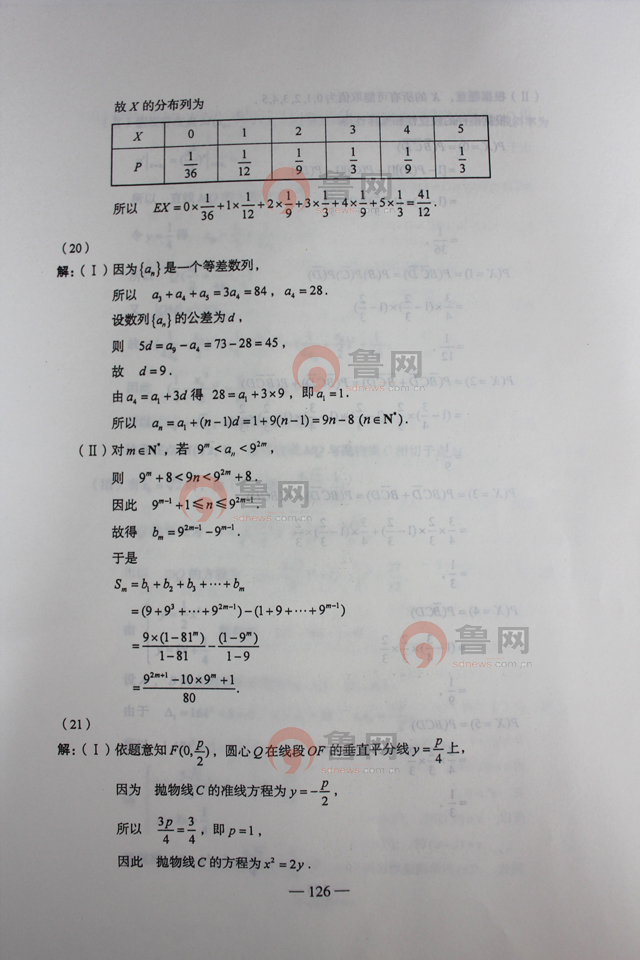 故 X 的分布列为
X 0 1 2 3 4 5
P 1/36 1/12 1/9 1/3 1/9 1/3
所以 EX=0×1/36+1×1/12+2×1/9+3×1/3+4×1/9+5×1/3=41/12.
(20)
解:(Ⅰ)因为{aₙ}是一个等差数列,
所以 a₃+a₄+a₅=3a₄=84, a₄=28.
设数列{aₙ}的公差为d,
则 5d=a₉-a₄=73-28=45,
故 d=9.
由a₄=a₁+3d得 28=a₁+3×9, 即a₁=1.
所以 aₙ=a₁+(n-1)d=1+9(n-1)=9n-8 (n∈N*).
(Ⅱ)对m∈N*, 若 9^m<aₙ<9^{2m},
则 9^m+8<9n<9^{2m}+8.
因此 9^{m-1}+1≤n≤9^{2m-1}.
故得 b_m=9^{2m-1}-9^{m-1}.
于是
S_m=b₁+b₂+b₃+⋯+b_m
=(9+9³+⋯+9^{2m-1})-(1+9+⋯+9^{m-1})
=9×(1-81^m)/(1-81)-(1-9^m)/(1-9)
=(9^{2m+1}-10×9^m+1)/80.
(21)
解:(Ⅰ)依题意知F(0,p/2), 圆心Q在线段OF的垂直平分线y=p/4上,
因为 抛物线C的准线方程为y=-p/2,
所以 3p/4=3/4, 即p=1,
因此 抛物线C的方程为x²=2y.
— 126 —
鲁网
sdnews.com.cn
鲁网
sdnews.com.cn
鲁网
sdnews.com.cn
鲁网
sdnews.com.cn
鲁网
sdnews.com.cn